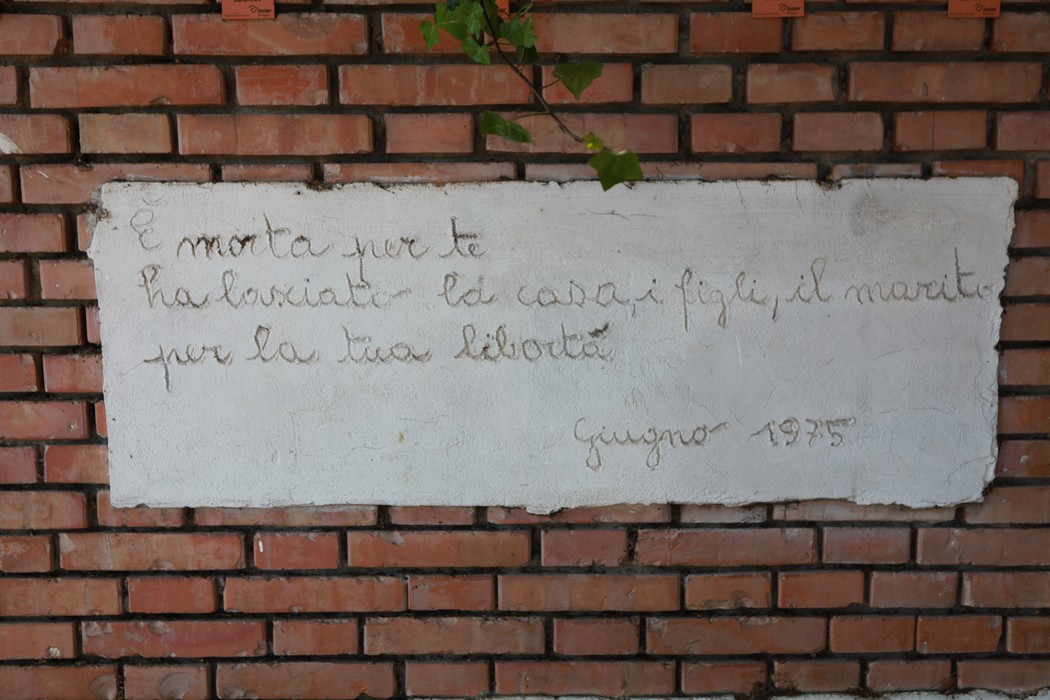 È morta per te
ha lasciato la casa, i figli, il marito
per la tua libertà
Giugno 1975